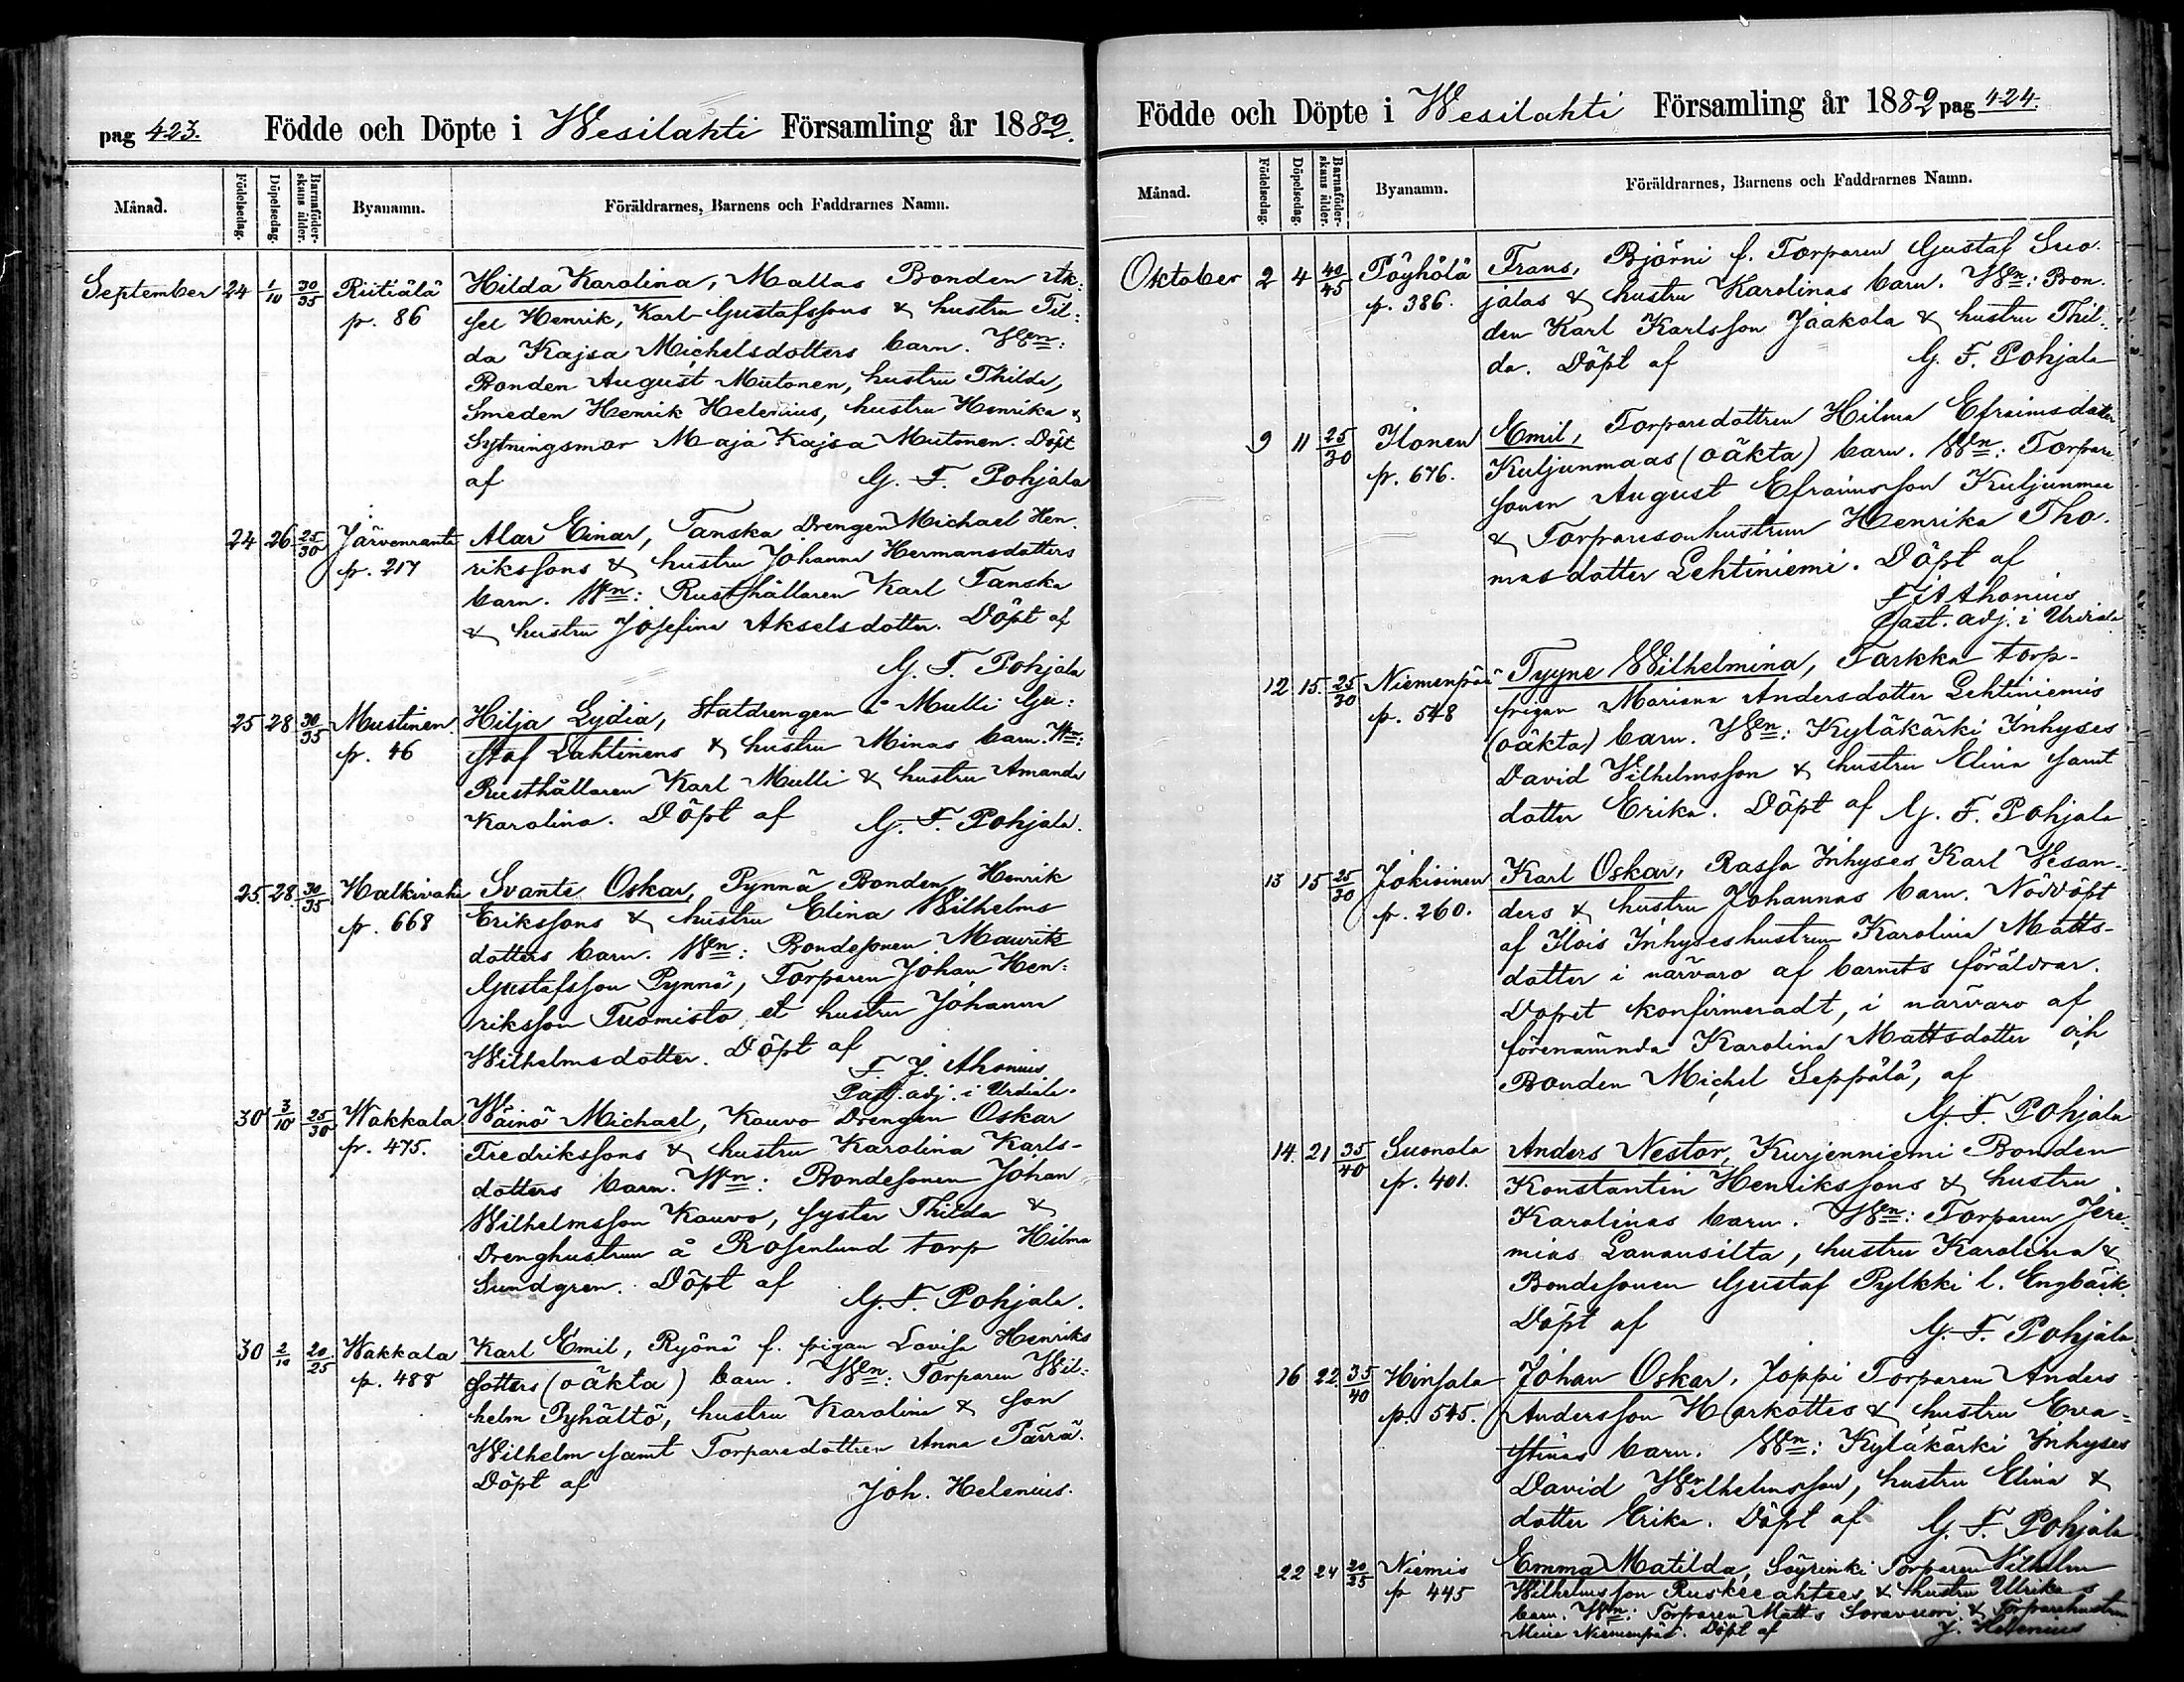 pag 423. Födde och Döpte i Wesilahti Församling år 1882.
Månad. Födelsedag. Döpelsedag. Barnaföderskans ålder. Byanamn. Föräldrarnes, Barnens och Faddrarnes Namn.
September 24 1/10 30/35 Riitiälä Hilda Karolina, Mallas Bonden Ak:
p. 86 sel Henrik, Karl Gustafssons & hustru Til:
da Kajsa Michelsdotters barn. Wn:
Bonden August Mutonen, hustru Thilda,
Smeden Henrik Helenius, hustru Henrika &
Sytningsmor Maja Kajsa Mutonen. Döpt
af G. F. Pohjala
24 26 25/30 Järvenranta Alar Einar, Tanska Drengen Michael Hen.
p. 217 rikssons & hustru Johanna Hermansdotters
barn. Wn: Rusthållaren Karl Tanska
& hustru Josefina Akselsdotter. Döpt af
G. F. Pohjala
25 28 30/35 Mustinen. Hilja Lydia, Statdrengen å Mulli Gu:
p. 46 staf Lahtinens & hustru Minas barn. Wn:
Rusthållaren Karl Mulli & hustru Amanda
Karolina. Döpt af G. F. Pohjala.
25 28. 30/35 Halkivaha Svante Oskar, Pynnä Bonden Henrik
p. 668 Erikssons & hustru Elina Wilhelms
dotters barn. Wn: Bondesonen Maurits
Gustafsson Pynnä, Torparen Johan Hen:
riksson Tuomisto, et hustru Johanna
Wilhelmsdotter. Döpt af
F. J. Ahonius
Past. adj. i Urdiala.
30 3/10 25/30 Wakkala Wäinö Michael, Kauvo Drengen Oskar
p. 475. Fredrikssons & hustru Karolina Karls-
dotters barn. Wn: Bondesonen Johan
Wilhelmsson Kauvo, syster Thilda &
Drenghustrun å Rosenlund torp Hilma
Sundgren. Döpt af G. F. Pohjala.
30 2/10 20/25 Wakkala Karl Emil, Ryönä f. pigan Lovisa Henriks
p. 488 dotters (oäkta) barn. Wn: Torparen Wil:
helm Pyhältö, hustru Karolina & son
Wilhelm samt Torparedottren Anna Pärrä.
Döpt af Joh. Helenius.
Födde och Döpte i Wesilahti Församling år 1882 pag 424.
Månad. Födelsedag. Döpelsedag. Barnaföderskans ålder. Byanamn. Föräldrarnes, Barnens och Faddrarnes Namn.
Oktober 2 4 40/45 Pöyhölä Frans, Björni f. Torparen Gustaf Suo.
p. 386. jalas & hustru Karolinas barn. Wn: Bon.
den Karl Karlsson Jaakola & hustru Thil.
da. Döpt af G. F. Pohjala
9 11 25/30 Ilonen Emil, Torparedottren Hilma Efraimsdotter
p. 676. Kuljunmaas (oäkta) barn. Wn: Torpare
sonen August Efraimsson Kuljunmaa
& Torparesonhustrun Henrika Tho.
masdotter Lehtiniemi. Döpt af
F J Ahonius
Past. adj. i Urdiala
12. 15. 25/30 Niemenpää Tyyne Wilhelmina, Tarkka torp-
p. 548 pigan Mariana Andersdotter Lehtiniemis
(oäkta) barn. Wn: Kyläkärki Inhyses
David Wilhelmsson & hustru Elina samt
dotter Erika. Döpt af G. F. Pohjala
13 15 25/30 Jokioinen Karl Oskar, Rassa Inhyses Karl Vesan-
p. 260. ders & hustru Johannas barn. Nöddöpt
af Ilois Inhyseshustrun Karolina Matts-
dotter i närvaro af barnets föräldrar.
Dopet konfirmeradt, i närvaro af
förenämnda Karolina Mattsdotter och
Bonden Michel Seppälä, af
G. F. Pohjala
14. 21 35/40 Suonala Anders Nestor, Kurjenniemi Bonden
p. 401. Konstantin Henrikssons & hustru
Karolinas barn. Wn: Torparen Jere.
mias Lanausilta, hustru Karolina &
Bondesonen Gustaf Pylkki l. Engbäck.
Döpt af G. F. Pohjala.
16 22. 35/40 Hinsala Johan Oskar, Joppi Torparen Anders
p. 545. Andersson Harkottes & hustru Eva-
stinas barn. Wn: Kyläkärki Inhyses
David Wilhelmsson, hustru Elina &
dotter Erika. Döpt af G. F. Pohjala
22 24 20/25 Niemis Emma Matilda, Säyrinki Torparen Vilhelm
p 445 Wilhelmsson Ruskeeahtees & hustru Ulrikas
barn. Wn: Torparen Matts Soravuori & Torparehustru
Miina Niemenpää. Döpt af J. Helenius